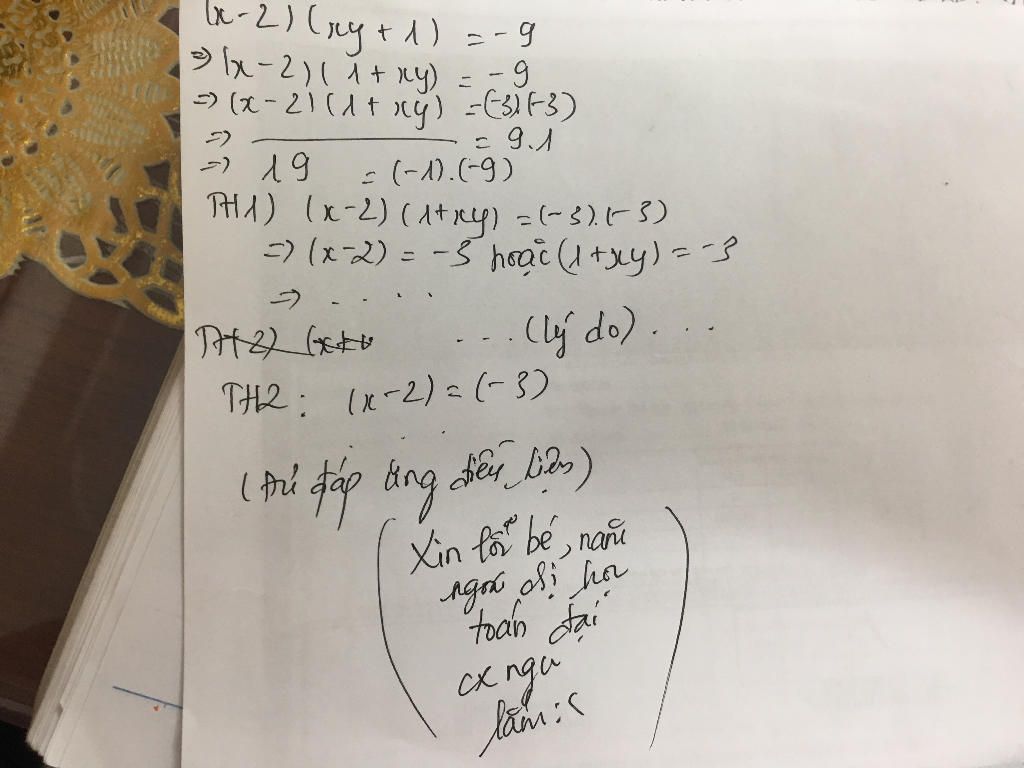 (x-2)(xy+1) = -9
=> (x-2)(1+xy) = -9
=> (x-2)(1+xy) = (-3)(-3)
=> = 9.1
=> 19 = (-1).(-9)
TH1) (x-2)(1+xy) = (-3).(-3)
=> (x-2) = -3 hoặc (1+xy) = -3
=> . . . .
TH2) (x+ ... (lý do) ...
TH2: (x-2) = (-3)
. . .
(đáp ứng điều kiện)
Xin lỗi bé, năm
ngoái chị học
toán đại
cx ngu
lắm :<